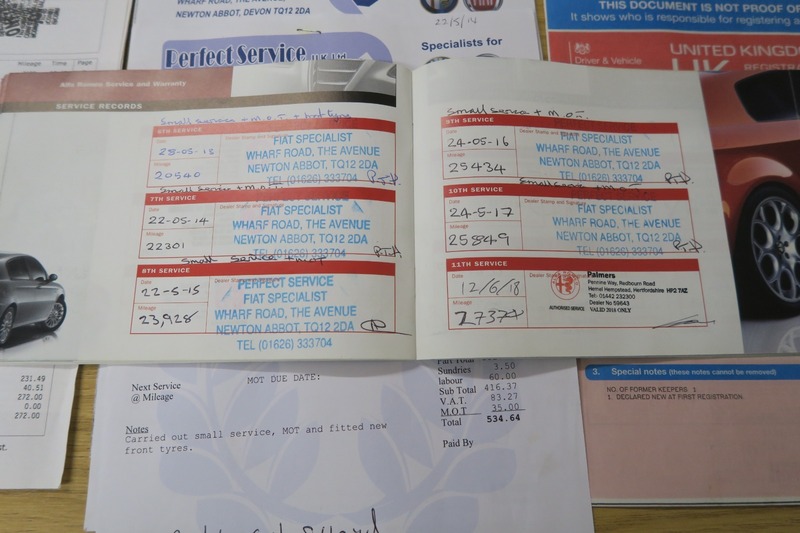 Mileage Time Page
WHARF ROAD, THE AVENUE
NEWTON ABBOT, DEVON TQ12 2DA
22/5/14
Perfect Service U.K. Ltd
Specialists for
THIS DOCUMENT IS NOT PROOF OF
It shows who is responsible for registering a
Driver & Vehicle
UNITED KINGDO
UK REGISTRA
Alfa Romeo Service and Warranty
SERVICE RECORDS
Small service + M.O.T. + front tyre
Date
Dealer Stamp and Signature
28-05-13
Mileage
20540
FIAT SPECIALIST
WHARF ROAD, THE AVENUE
NEWTON ABBOT, TQ12 2DA
TEL (01626) 333704
Small service + M.O.T.
7TH SERVICE
Date
22-05-14
Mileage
22301
FIAT SPECIALIST
WHARF ROAD, THE AVENUE
NEWTON ABBOT, TQ12 2DA
TEL (01626) 333704
Small service + MOT
8TH SERVICE
Date
22-5-15
Mileage
23,928
PERFECT SERVICE
FIAT SPECIALIST
WHARF ROAD, THE AVENUE
NEWTON ABBOT, TQ12 2DA
TEL (01626) 333704
Small service + M.O.T.
9TH SERVICE
Date
Dealer Stamp and Signature
24-05-16
Mileage
25434
FIAT SPECIALIST
WHARF ROAD, THE AVENUE
NEWTON ABBOT, TQ12 2DA
TEL (01626) 333704
Small service + M.O.T.
10TH SERVICE
Date
24-5-17
Mileage
25849
FIAT SPECIALIST
WHARF ROAD, THE AVENUE
NEWTON ABBOT, TQ12 2DA
TEL (01626) 333704
11TH SERVICE
Date
12/6/18
Mileage
27374
AUTHORISED SERVICE
Palmers
Pennine Way, Redbourn Road
Hemel Hempstead, Hertfordshire HP2 7AZ
Tel: 01442 232300
Dealer No 59643
VALID 2018 ONLY
231.49
40.51
272.00
0.00
272.00
Next Service
@ Mileage
MOT DUE DATE:
Part Total
Sundries 3.50
labour 60.00
Sub Total 416.37
V.A.T. 83.27
M.O.T 35.00
Total 534.64
Paid By
Notes
Carried out small service, MOT and fitted new
front tyres.
3. Special notes (these notes cannot be removed)
NO. OF FORMER KEEPERS. 1
1. DECLARED NEW AT FIRST REGISTRATION.